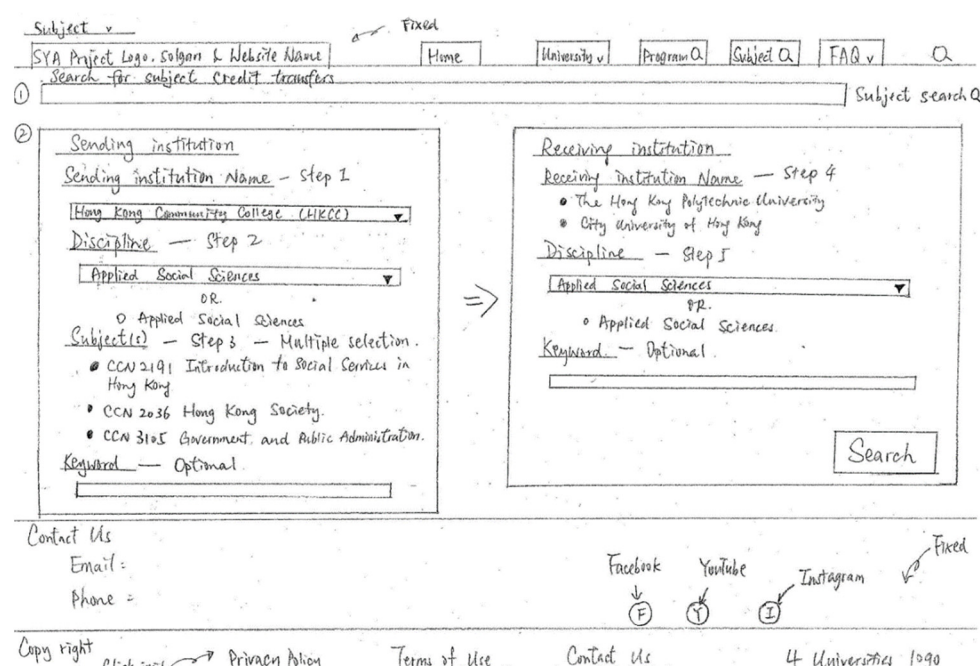 Subject ∨
Fixed
SYA Project Logo, Solgan & Website Name
Home
University ∨
Program Q
Subject Q
FAQ ∨
Search for subject credit transfers
①
Subject search Q
②
Sending institution
Sending institution Name — Step 1
Hong Kong Community College (HKCC)
Discipline — Step 2
Applied Social Sciences
OR.
Applied Social Sciences
Subject(s) — Step 3 — Multiple selection.
CCN 2191 Introduction to Social Services in
Hong Kong
CCN 2036 Hong Kong Society.
CCN 3105 Government and Public Administration.
Keyword — Optional
⇒
Receiving institution
Receiving institution Name — Step 4
The Hong Kong Polytechnic University
City University of Hong Kong
Discipline — Step 5
Applied Social Sciences
OR.
Applied Social Sciences
Keyword — Optional.
Search
Contact Us
Email:
Phone =
Facebook
Youtube
Instagram
Fixed
F
Y
I
Copy right
Privacy Policy
Terms of Use
Contact Us
4 Universities logo